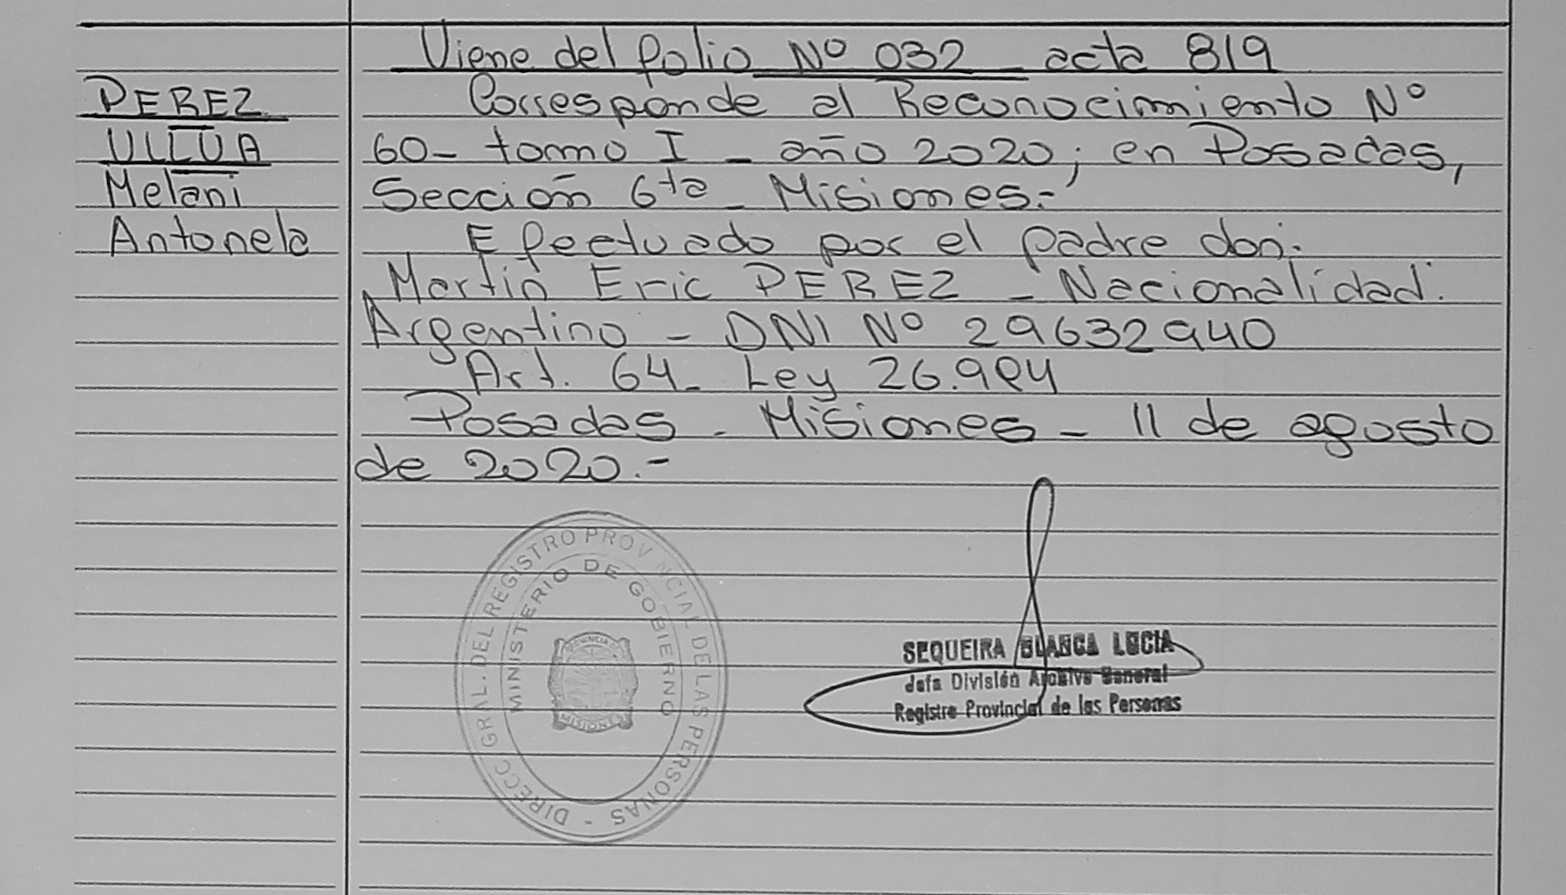 Viene del folio Nº 032 acta 819
PEREZ
ULLUA
Melani
Antonela
Corresponde al Reconocimiento Nº
60- tomo I - año 2020; en Posadas,
Sección 6ta - Misiones.-
Efectuado por el padre don:
Martin Eric PEREZ - Nacionalidad:
Argentino - DNI Nº 29632940
Art. 64- Ley 26.994
Posadas - Misiones - 11 de agosto
de 2020.-
DIRECC. GRAL. DEL REGISTRO PROVINCIAL DE LAS PERSONAS -
MINISTERIO DE GOBIERNO
PROVINCIA
MISIONES
SEQUEIRA BLANCA LUCIA
Jefa División Archivo General
Registro Provincial de las Personas